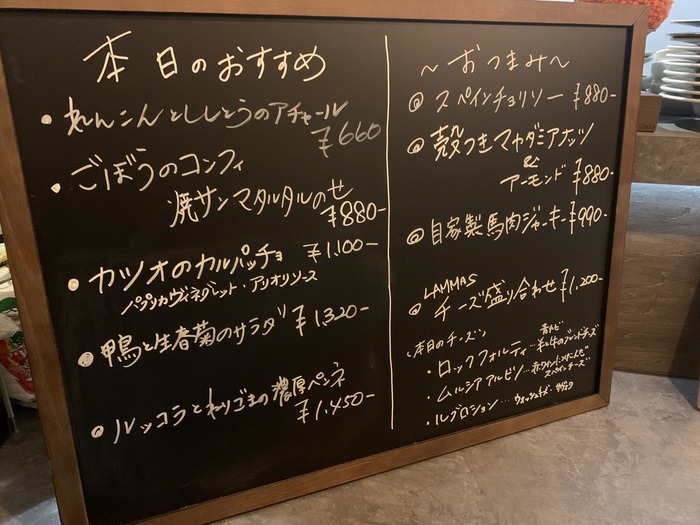 本日のおすすめ
・れんこんとししとうのアチャール
¥660
・ごぼうのコンフィ
焼サンマタルタルのせ
¥880-
・カツオのカルパッチョ ¥1,100-
パプリカヴィネグレット・アリオリソース
・鴨と生春菊のサラダ ¥1,320-
・ルッコラとねりごまの濃厚ペンネ
¥1,450-
〜おつまみ〜
◎スペインチョリソー ¥880-
◎殻つきマカダミアナッツ
&
アーモンド ¥880-
◎自家製馬肉ジャーキー ¥990-
LAMMAS
◎チーズ盛り合わせ ¥1,200-
〈本日のチーズ〉
青カビ
・ロックフォルティ…羊と牛のブレンドチーズ
・ムルシア アルビノ…赤ワインにつけこんだ
スペインチーズ
・ルグロション…ウォッシュチーズ